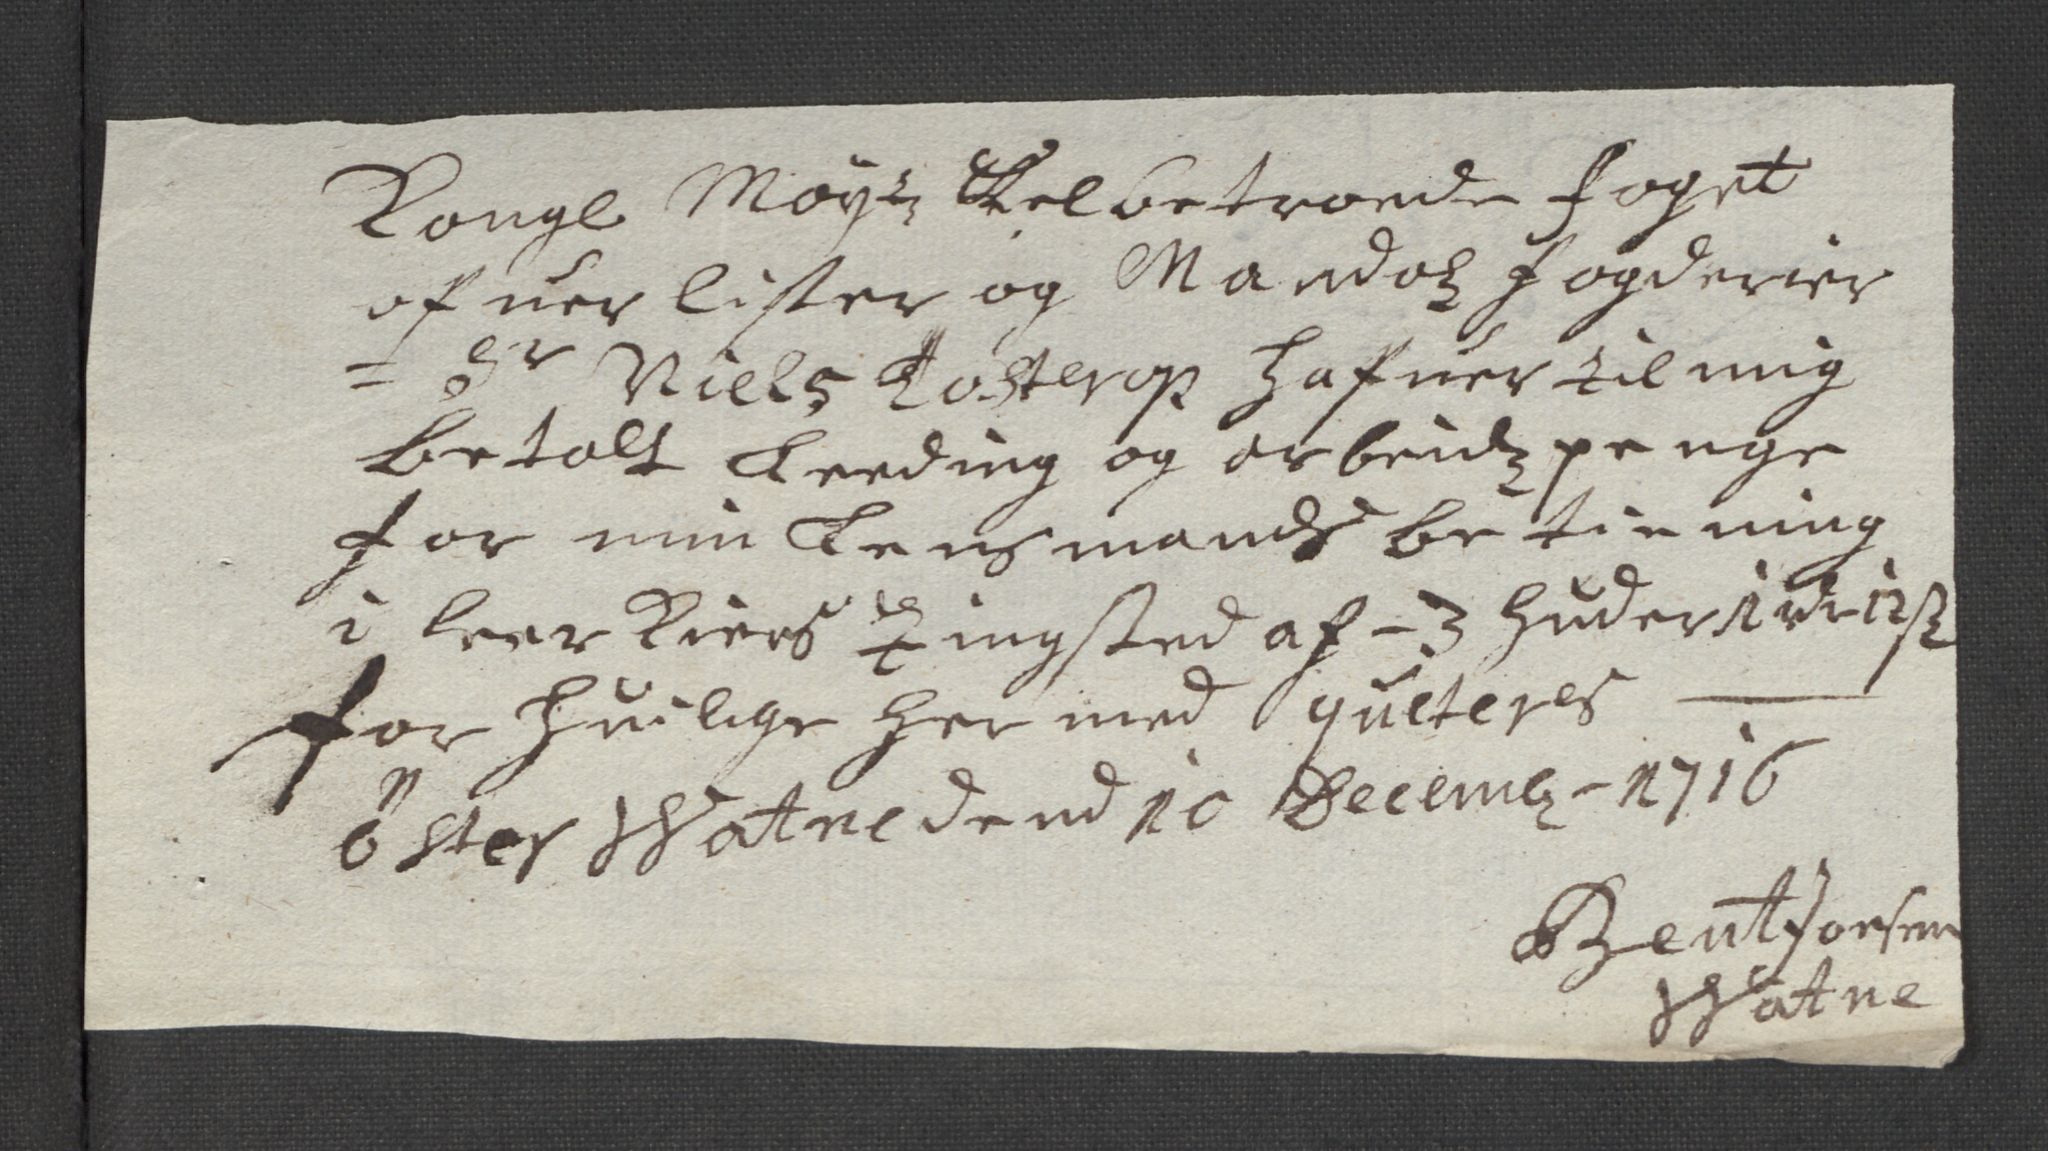 Kongl Mayts Velbetroede foget
ofuer lister og Mandals fogderier
= Sr Niels Tosterop hafuer til mig
betalt Leeding og arbeidz penge
for min Lensmands betiening
i leer Kiers Tingsted af - 3 huder
for huilche her med quiteres
öster Watne dend 10 Decemb - 1716
Bent Joensen
Watne